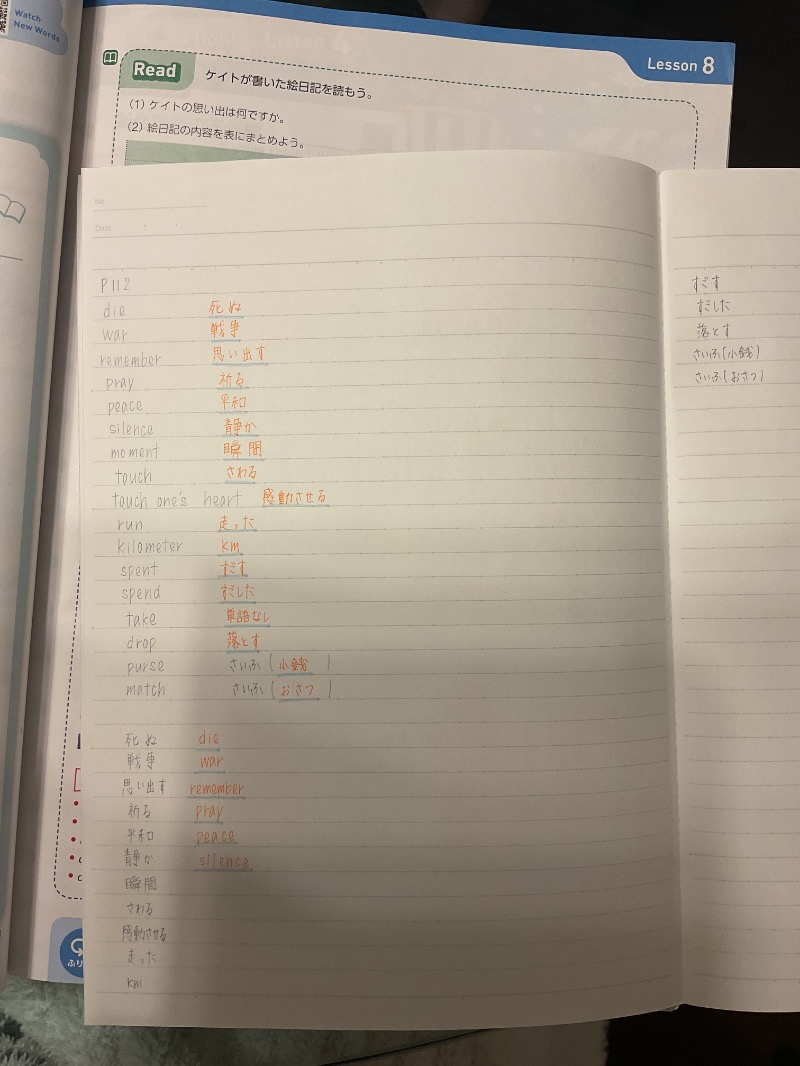 Watch
New Words
Lesson 8
Read ケイトが書いた絵日記を読もう。
(1) ケイトの思い出は何ですか。
(2) 絵日記の内容を表にまとめよう。
No.
Date
P112
die 死ぬ
war 戦争
remember 思い出す
pray 祈る
peace 平和
silence 静か
moment 瞬間
touch さわる
touch one's heart 感動させる
run 走った
kilometer km
spent すごす
spend すごした
take 単語なし
drop 落とす
purse さいふ(小銭)
match さいふ(おさつ)
死ぬ die
戦争 war
思い出す remember
祈る pray
平和 peace
静か silence
瞬間
さわる
感動させる
走った
km
すごす
すごした
落とす
さいふ(小銭)
さいふ(おさつ)